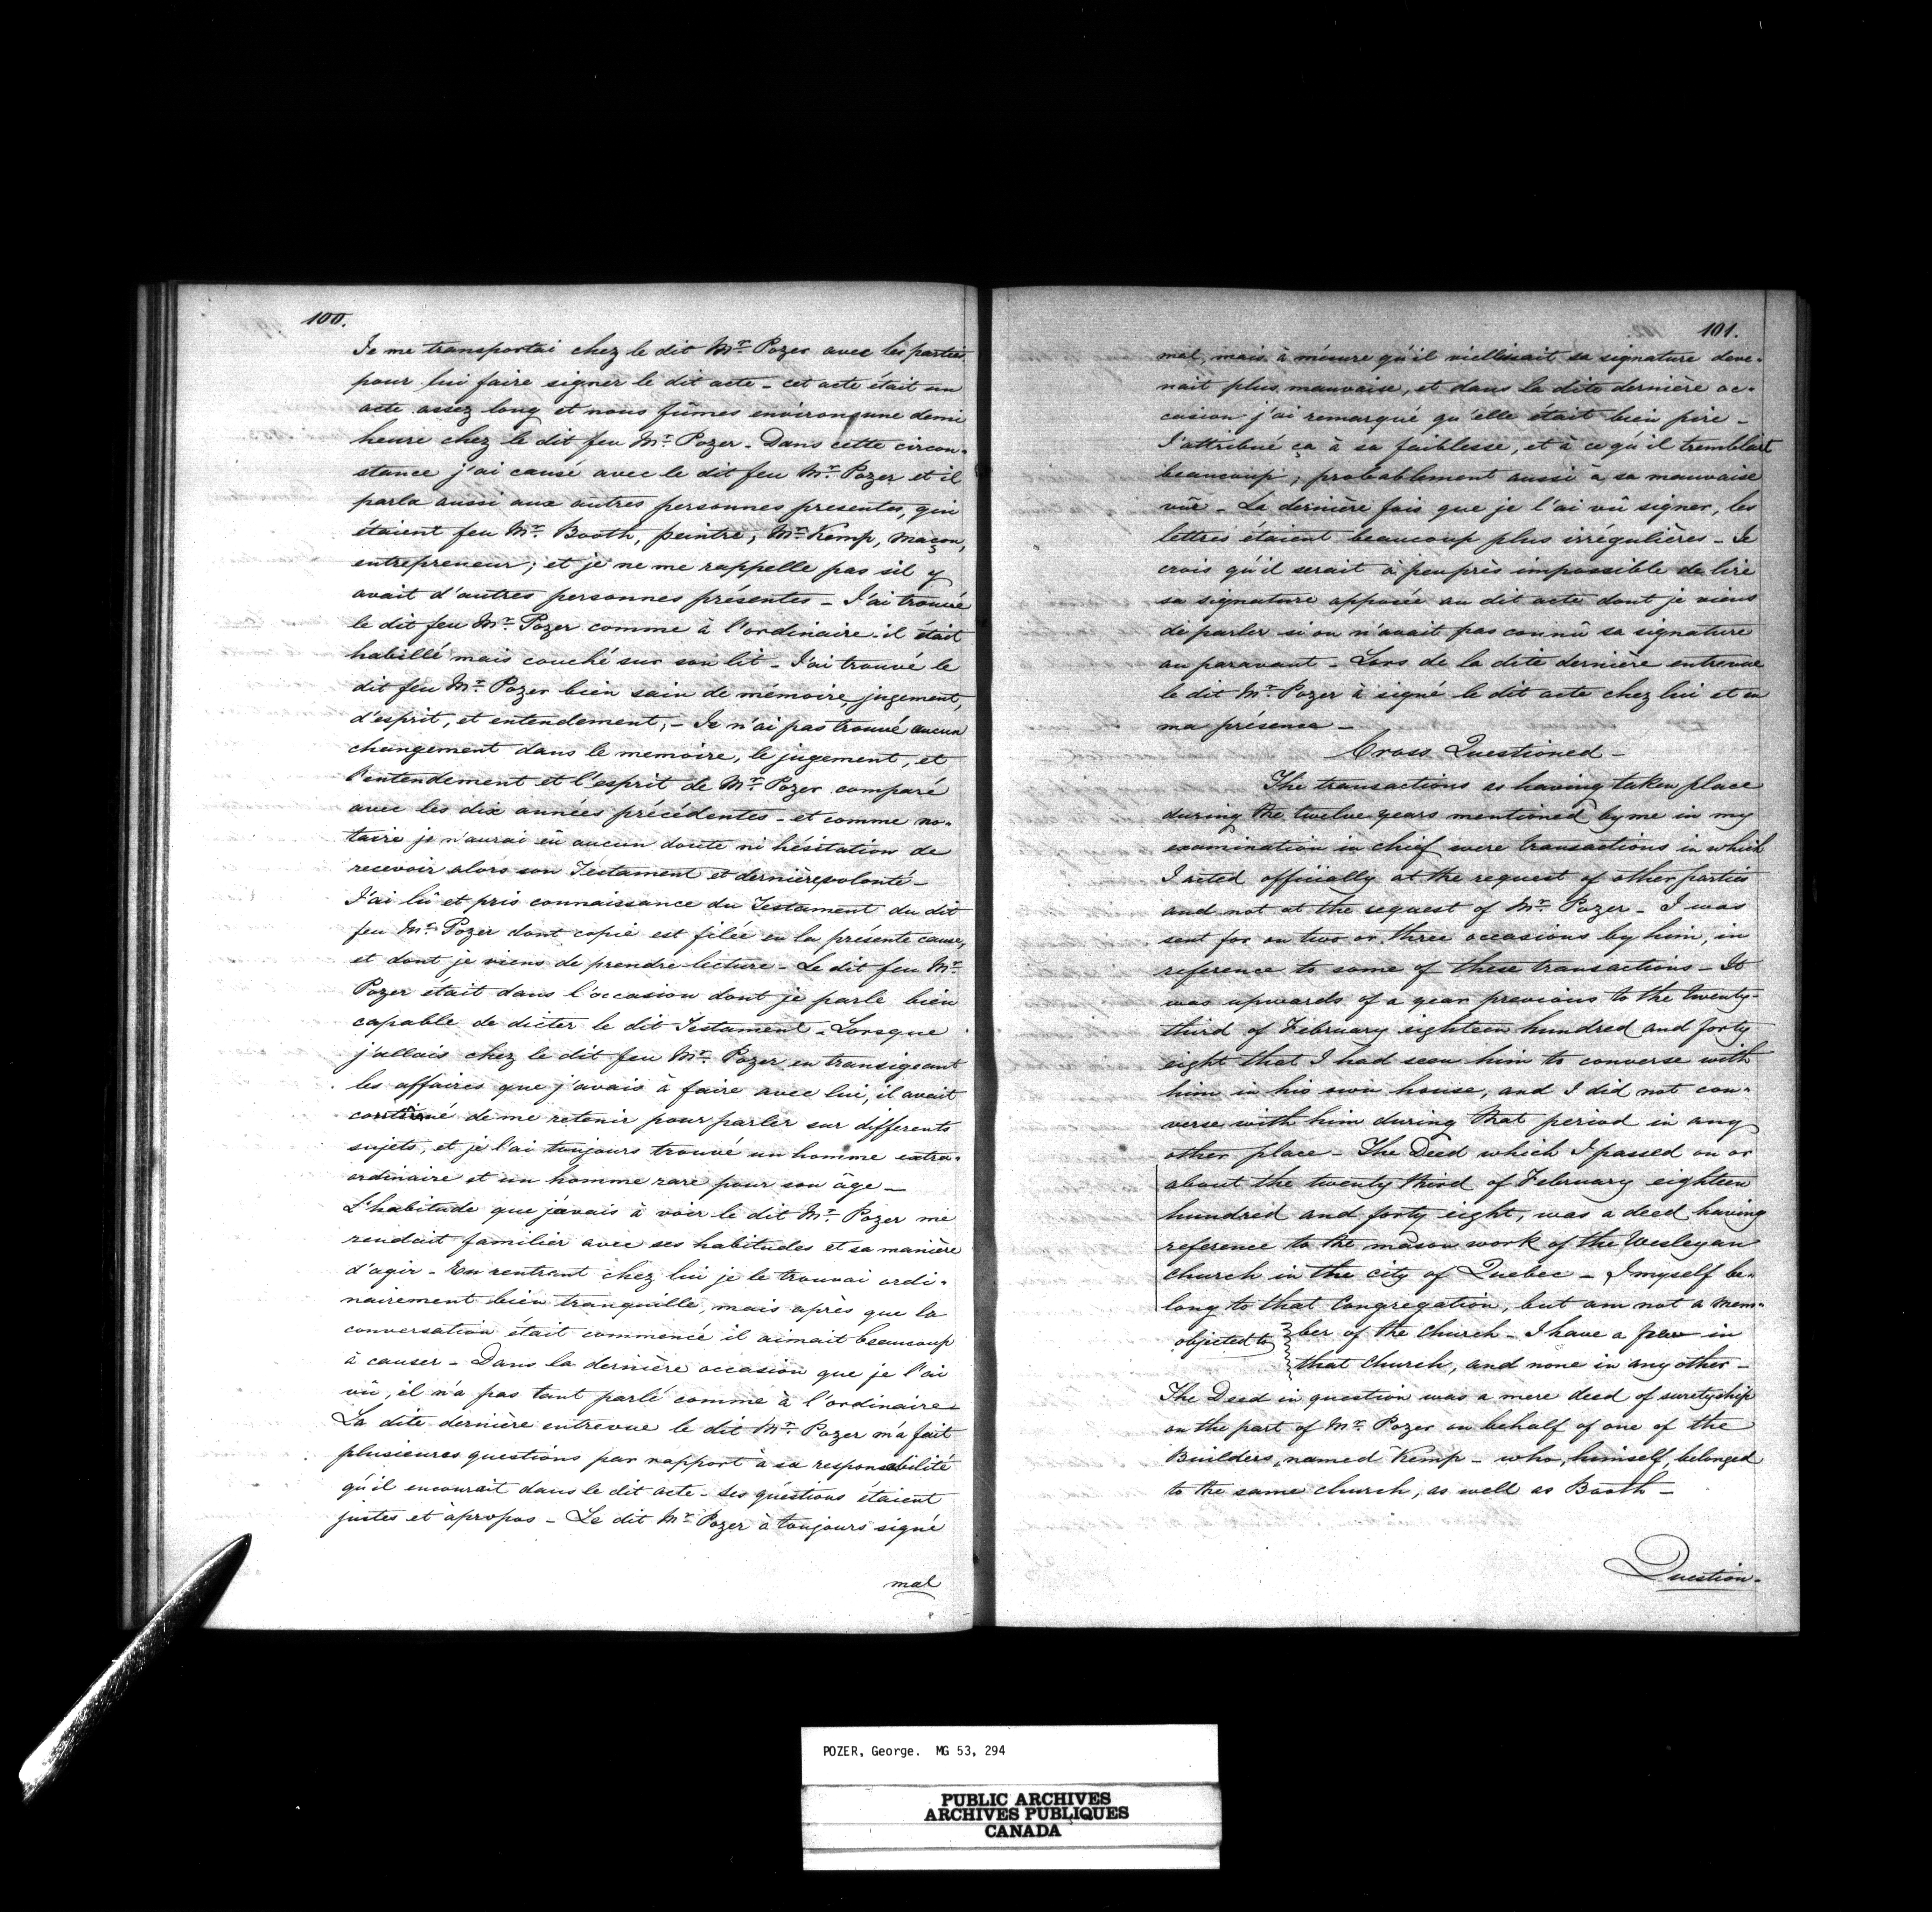 100.
Je me transportai chez le dit Mr. Pozer avec les parties
pour lui faire signer le dit acte - cet acte était un
acte assez long et nous fûmes environ une demi
heure chez le dit feu Mr. Pozer. Dans cette circon-
stance j'ai causé avec le dit feu Mr. Pozer et il
parla aussi aux autres personnes presentes, qui
étaient feu Mr. Booth, peintre, Mr. Kemp, maçon,
entrepreneur; et je ne me rappelle pas sil y
avait d'autres personnes présentes - J'ai trouvé
le dit feu Mr. Pozer comme à l'ordinaire. il était
habillé mais couché sur son lit - J'ai trouvé le
dit feu Mr. Pozer bien sain de mémoire, jugement,
d'esprit, et entendement, - Je n'ai pas trouvé aucun
changement dans le memoire, le jugement, et
l'entendement et l'esprit de Mr. Pozer comparé
avec les dix années précédentes - et comme no-
taire je n'aurai eû aucun doute ni hésitation de
recevoir alors son Testament et dernière volonté -
J'ai lu et pris connaissance du Testament du dit
feu Mr. Pozer dont copie est filée en la présente cause,
et dont je viens de prendre lecture - Le dit feu Mr.
Pozer était dans l'occasion dont je parle bien
capable de dicter le dit Testament - Lorsque
j'allais chez le dit feu Mr. Pozer en transigeant
les affaires que j'avais à faire avec lui, il avait
continué de me retenir pour parler sur differents
sujets, et je l'ai toujours trouvé un homme extra-
ordinaire et un homme rare pour son âge -
L'habitude que j'avais à voir le dit Mr. Pozer me
rendait familier avec ses habitudes et sa manière
d'agir - En rentrant chez lui je le trouvai ordi-
nairement bien tranquille, mais après que la
conversation était commencé il aimait beaucoup
à causer - Dans la dernière occasion que je l'ai
vû, il n'a pas tant parlé comme à l'ordinaire -
La dite dernière entrevue le dit Mr. Pozer m'a fait
plusieures questions par rapport à sa responsabilité
qu'il encourait dans le dit acte - Ses questions étaient
justes et àpropos - Le dit Mr. Pozer à toujours signé
mal
101.
mal, mais à mésure qu'il viellissait sa signature deve-
nait plus mauvaise, et dans la dite dernière oc-
casion j'ai remarqué qu'elle était bien pire -
J'attribué ça à sa faiblesse, et à ce qu'il tremblait
beaucoup, probablement aussi à sa mauvaise
vûe - La dernière fois que je l'ai vû signer, les
lettres étaient beaucoup plus irrégulières - Je
crois qu'il serait à peu près impossible de lire
sa signature apposée au dit acte dont je viens
de parler si on n'avait pas connû sa signature
au paravant - Lors de la dite dernière entrevue
le dit Mr. Pozer à signé le dit acte chez lui et en
ma présence -
Cross Questioned -
The transactions as having taken place
during the twelve years mentioned by me in my
examination in chief were transactions in which
I acted officially at the request of other parties
and not at the request of Mr. Pozer - I was
sent for on two or three occasions by him, in
reference to some of these transactions - It
was upwards of a year previous to the twenty-
third of February eighteen hundred and forty
eight that I had seen him to converse with
him in his own house, and I did not con-
verse with him during that period in any
other place - The Deed which I passed on or
about the twenty third of February eighteen
hundred and forty eight, was a deed having
reference to the mason work of the Wesleyan
church in the city of Quebec - I myself be-
long to that Congregation, but am not a mem-
objected to ber of the church - I have a pew in
that church, and none in any other -
The Deed in question was a mere deed of suretyship
on the part of Mr. Pozer on behalf of one of the
Builders, named Kemp - who, himself, belonged
to the same church, as well as Booth -
Question -
POZER, George. MG 53, 294
PUBLIC ARCHIVES
ARCHIVES PUBLIQUES
CANADA